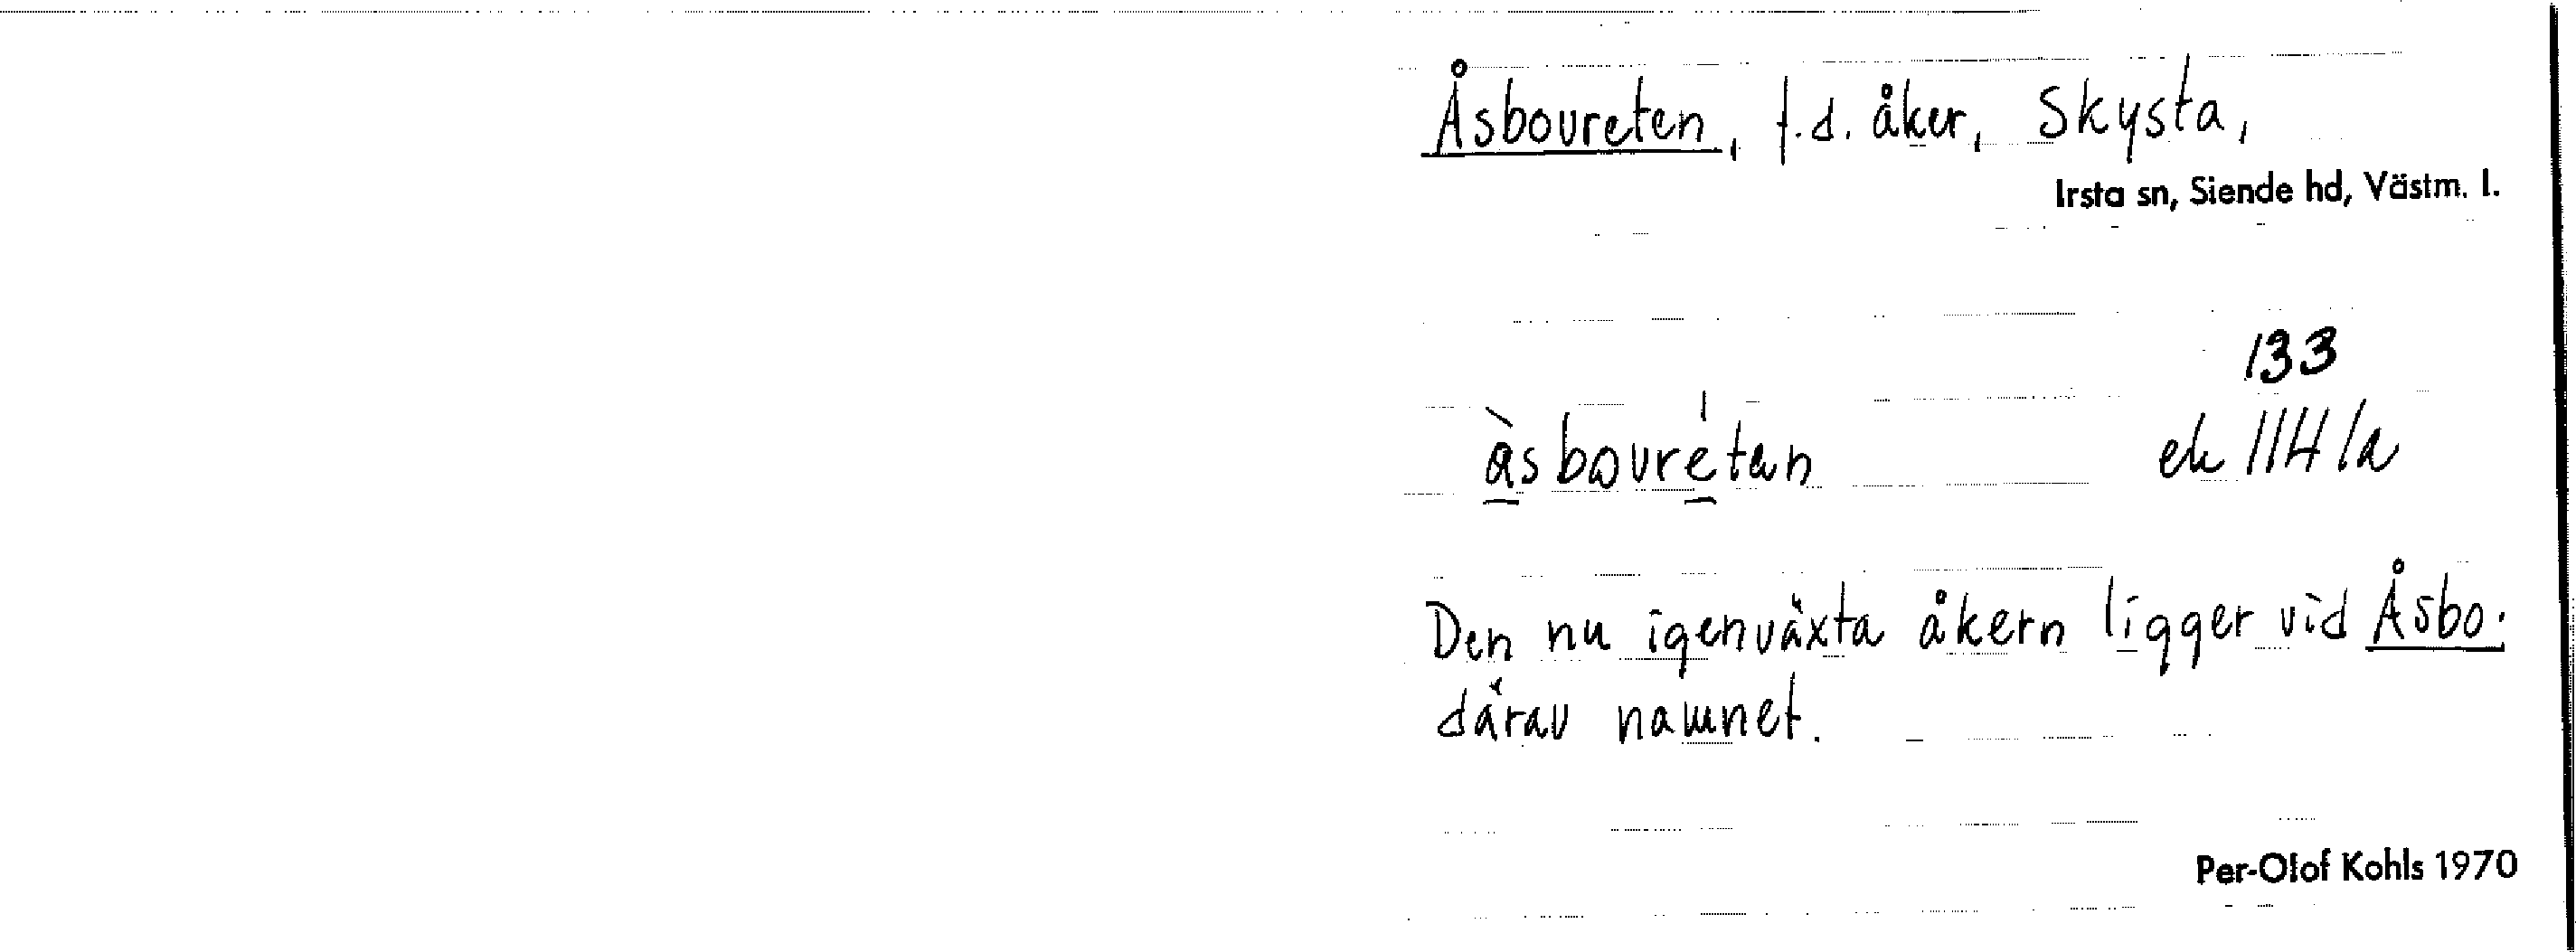 Åsboureten, f.d. åker, Skysta,
Irsta sn, Siende hd, Västm. l.
133
åsbouretan
ek 114/a
Den nu igenväxta åkern ligger vid Åsbo.
därav namnet.
Per-Olof Kohls 1970